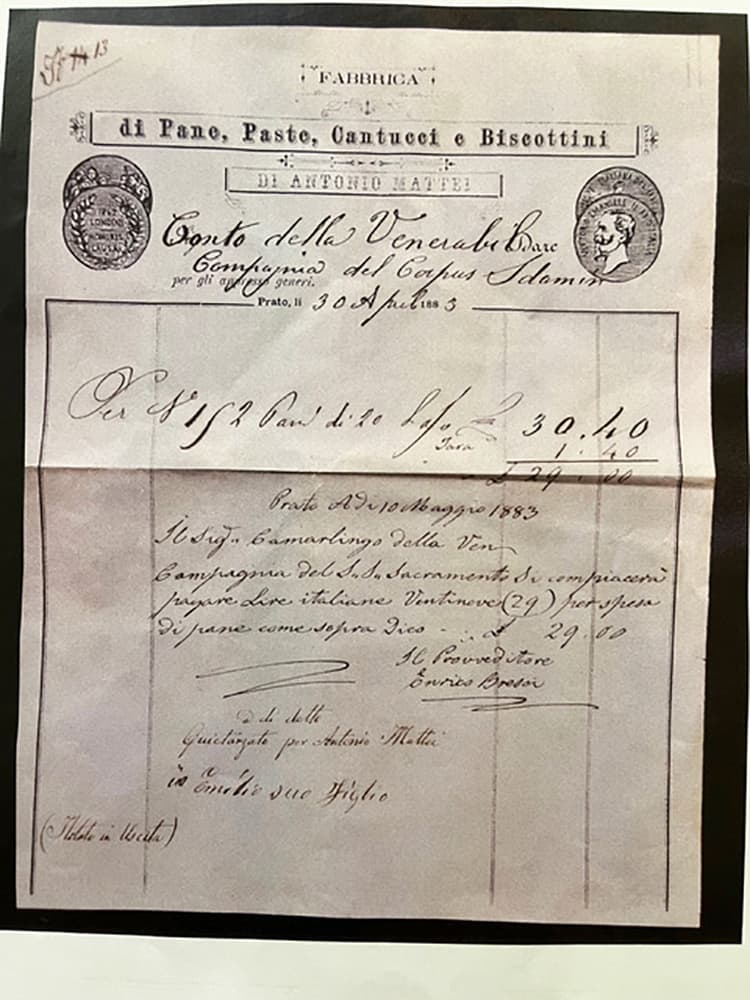 13
FABBRICA
di Pane, Paste, Cantucci e Biscottini
DI ANTONIO MATTEI
1862
LONDON
HONORIS
CAUSA
Conto della Venerabil Dare
Compagnia del Corpus Domini
per gli appresso generi.
Prato, li 30 April 1883
Per N 152 Pani di 20 £ 30.40
Tara 1.40
£ 29.00
Prato A di 10 Maggio 1883
Il Sigr. Camarlingo della Ven
Compagnia del S.S. Sacramento Si compiacerà
pagare Lire italiane Ventinove (29) per spesa
di pane come sopra Dico - £ 29.00
Il Provveditore
Enrico Bresci
a di detto
Quietanzato per Antonio Mattei
Emilio suo Figlio
(Notato in Uscita)